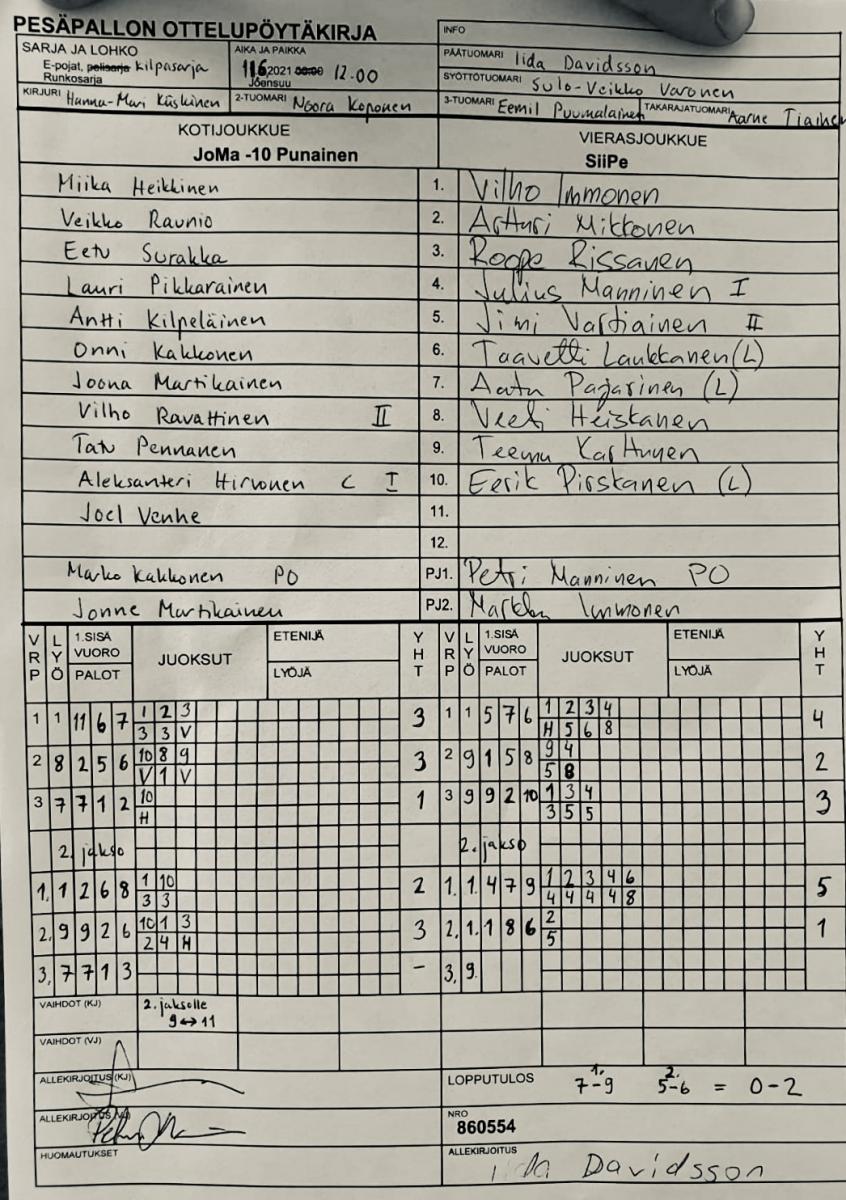 PESÄPALLON OTTELUPÖYTÄKIRJA
INFO
SARJA JA LOHKO
E-pojat, polisarja Kilpasarja
Runkosarja
AIKA JA PAIKKA
11.6 2021 00:00 12.00
Joensuu
PÄÄTUOMARI Iida Davidsson
SYÖTTÖTUOMARI Sulo-Veikko Varonen
KIRJURI Hannu-Mari Käskinen
2-TUOMARI Noora Koponen
3-TUOMARI Eemil Puumalainen
TAKARAJATUOMARI Aarne Tiainen
KOTIJOUKKUE
JoMa -10 Punainen
VIERASJOUKKUE
SiiPe
Miika Heikkinen 1. Vilho Immonen
Veikko Raunio 2. Artturi Mikkonen
Eetu Surakka 3. Roope Rissanen
Lauri Pikkarainen 4. Julius Manninen I
Antti Kilpeläinen 5. Jimi Vartiainen II
Onni Kakkonen 6. Taavetti Laukkanen (L)
Joona Martikainen 7. Aatu Pajarinen (L)
Vilho Ravattinen II 8. Veeti Heiskanen
Tatu Pennanen 9. Teemu Karttunen
Aleksanteri Hirvonen C I 10. Eerik Pirskanen (L)
Joel Venhe 11.
12.
Marko Kakkonen PO PJ1. Petri Manninen PO
Jonne Martikainen PJ2. Immonen
VRP LYÖ 1.SISÄ VUORO PALOT JUOKSUT ETENIJÄ LYÖJÄ YHT VRP LYÖ 1.SISÄ VUORO PALOT JUOKSUT ETENIJÄ LYÖJÄ YHT
1 1 11 6 7 1 2 3 3 1 1 5 7 6 1 2 3 4 4
3 3 V H 5 6 8
2 8 2 5 6 10 8 9 3 2 9 1 5 8 9 4 2
V 1 V 5 8
3 7 7 1 2 10 1 3 9 9 2 10 1 3 4 3
H 3 5 5
2. jakso 2. jakso
1. 1 2 6 8 1 10 2 1. 1 4 7 9 1 2 3 4 6 5
3 3 4 4 4 4 8
2. 9 9 2 6 10 1 3 3 2. 1. 1 8 6 2 1
2 4 H 5
3. 7 7 1 3 - 3. 9.
VAIHDOT (KJ) 2. jaksolle
9↔11
VAIHDOT (VJ)
ALLEKIRJOITUS (KJ)
LOPPUTULOS 1. 7-9 2. 5-6 = 0-2
ALLEKIRJOITUS (VJ)
NRO
860554
HUOMAUTUKSET
ALLEKIRJOITUS
Iida Davidsson